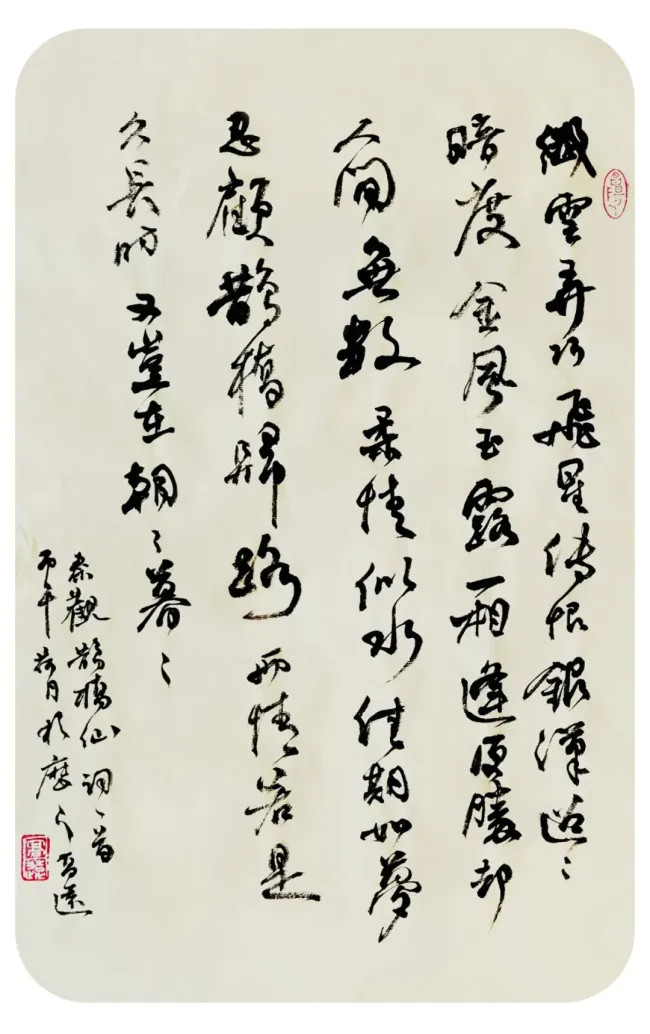 纖雲弄巧飛星傳恨銀漢迢〻
暗度金風玉露一相逢便勝却
人間無數柔情似水佳期如夢
忍顧鵲橋歸路兩情若是
久長時又豈在朝〻暮〻
秦觀鵲橋仙詞一首
丙午荷月於歷下